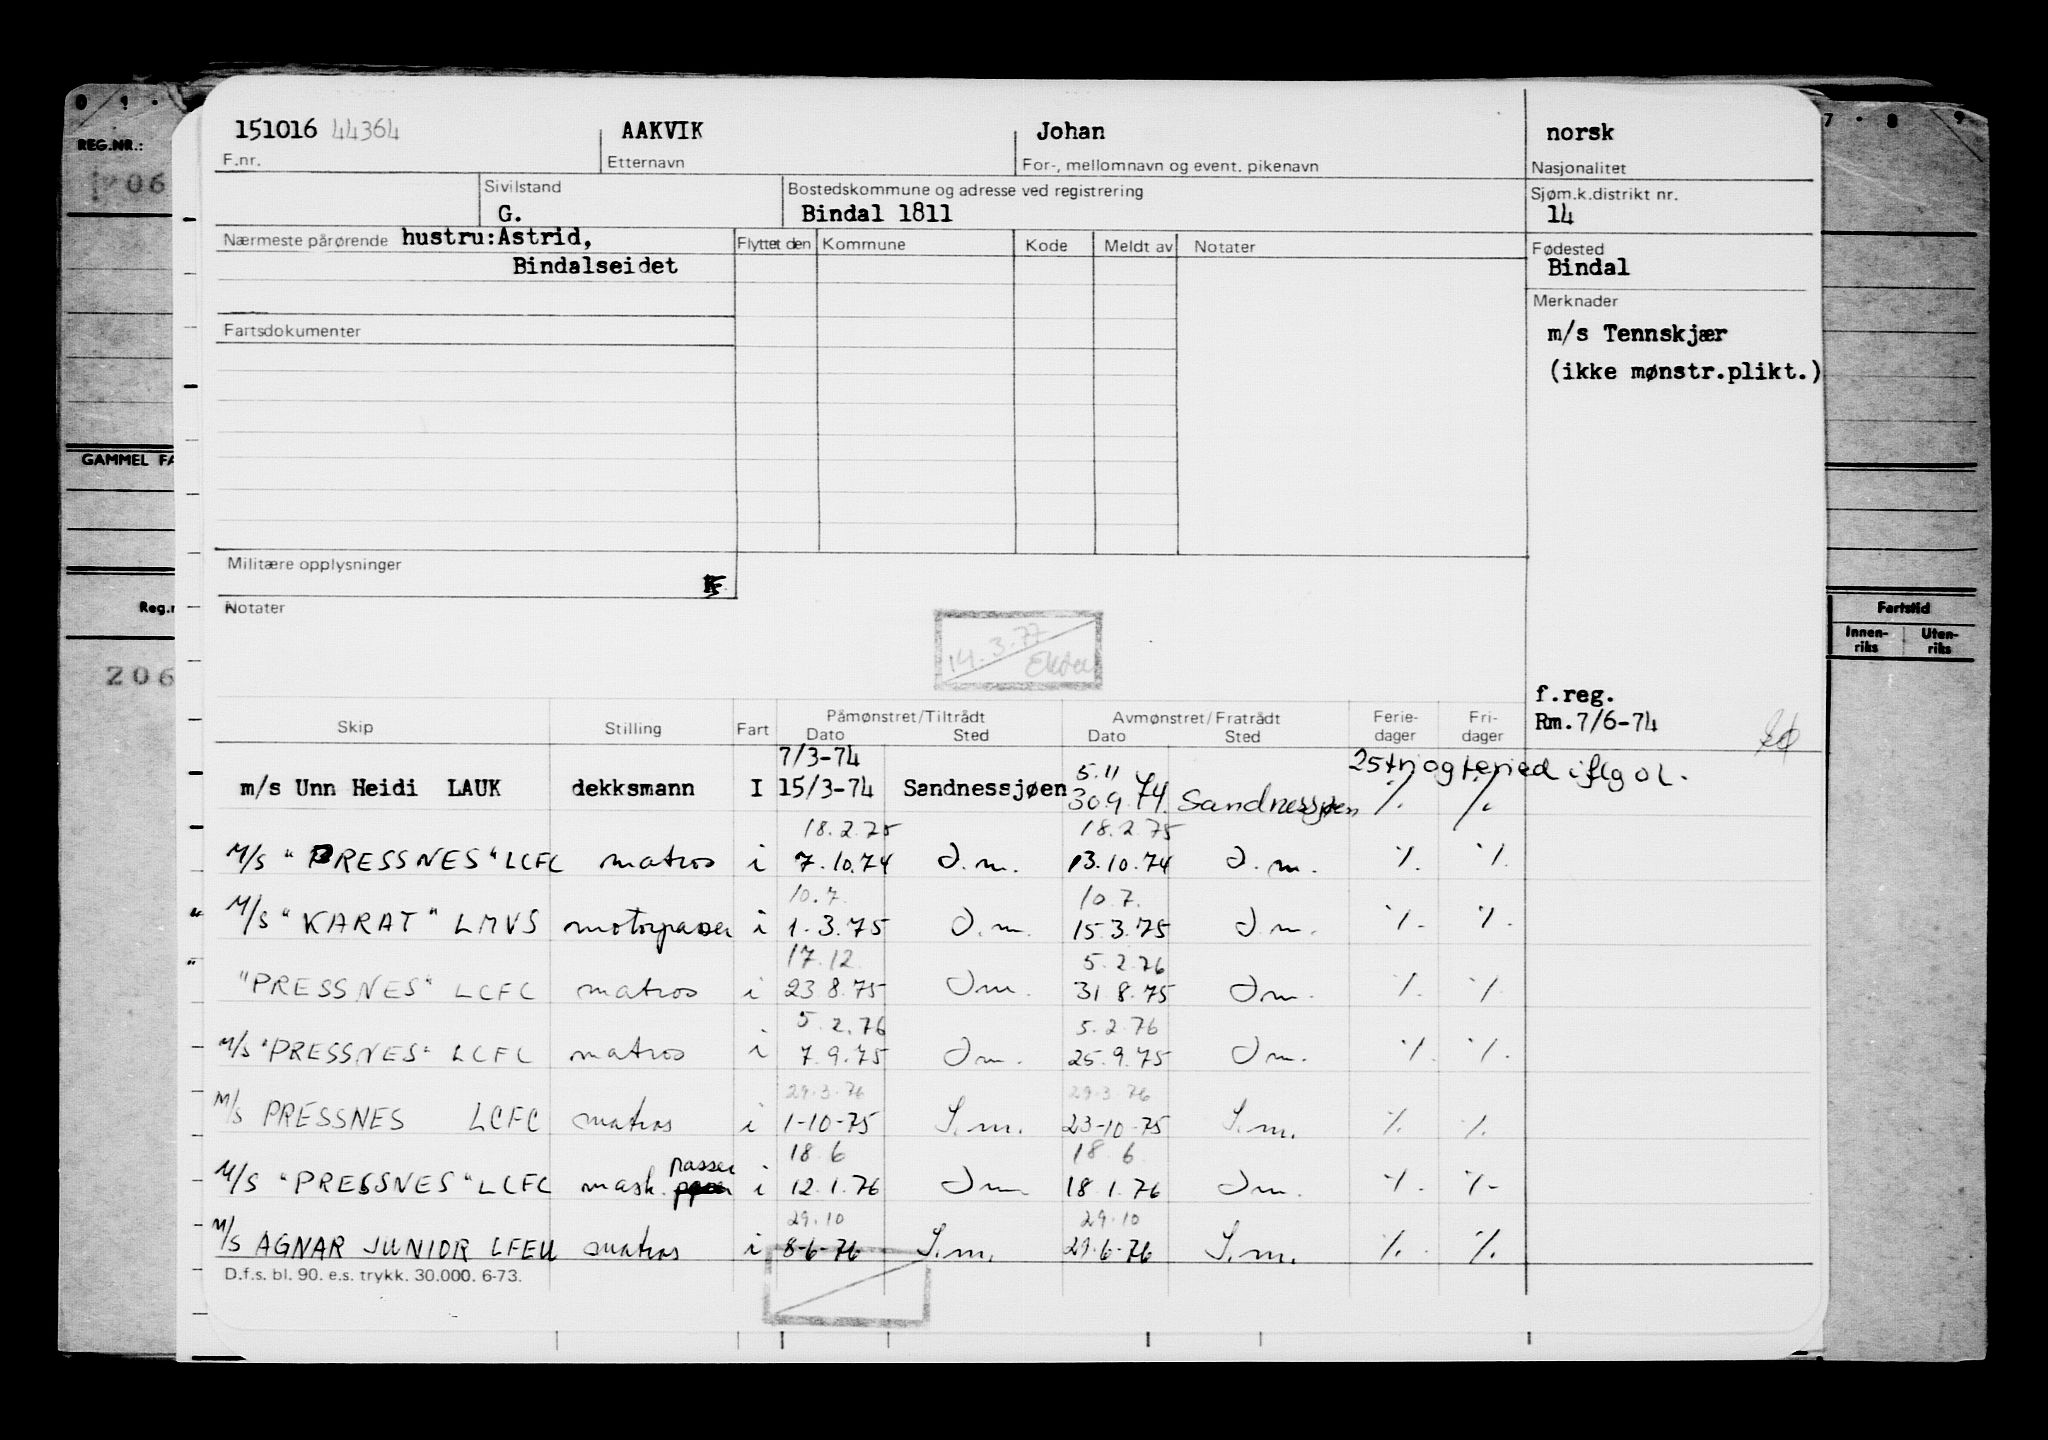 151016 44364 AAKVIK Johan norsk
F.nr. Etternavn For-, mellomnavn og event. pikenavn Nasjonalitet
REG.NR.:
06
Sivilstand Bostedskommune og adresse ved registrering Sjøm.k.distrikt nr.
G. Bindal 1811 14
Nærmeste pårørende hustru:Astrid, Flyttet den Kommune Kode Meldt av Notater Fødested
Bindalseidet Bindal
Merknader
Fartsdokumenter m/s Tennskjær
(ikke mønstr.plikt.)
GAMMEL FA
Militære opplysninger
Reg.n
Notater
Fartstid
Innen-riks Uten-riks
14.3.77
206
f.reg.
Skip Stilling Fart Påmønstret/Tiltrådt Avmønstret/Fratrådt Ferie-dager Fri-dager Rm.7/6-74
Dato Sted Dato Sted
7/3-74 5.11 25 fri og feried iflg OL.
m/s Unn Heidi LAUK dekksmann I 15/3-74 Sandnessjøen 30.9.74. Sandnessjøen % %
18.2.75 18.2.75
M/S "PRESSNES" LCFC matros i 7.10.74 D.m. 13.10.74 D.m. % %
10.7. 10.7.
" M/S "KARAT" LMVS motorpasser i 1.3.75 D.m. 15.3.75 D.m. % %
17.12. 5.2.76
" "PRESSNES" LCFC matros i 23.8.75 Dm. 31.8.75 Dm. % %
5.2.76 5.2.76
M/S "PRESSNES" LCFC matros i 7.9.75 Dm. 25.9.75 Dm. % %
29.3.76 29.3.76
M/S PRESSNES LCFC matros i 1-10-75 S.m. 23-10-75 S.m. % %
18.6 18.6.
M/S "PRESSNES" LCFC mask. passer i 12.1.76 Dm 18.1.76 Dm. % %
29.10 29.10
M/S AGNAR JUNIOR LFEU matros i 8-6-76 S.m. 29.6-76 S.m. % %
D.f.s. bl. 90. e.s. trykk. 30.000. 6-73.